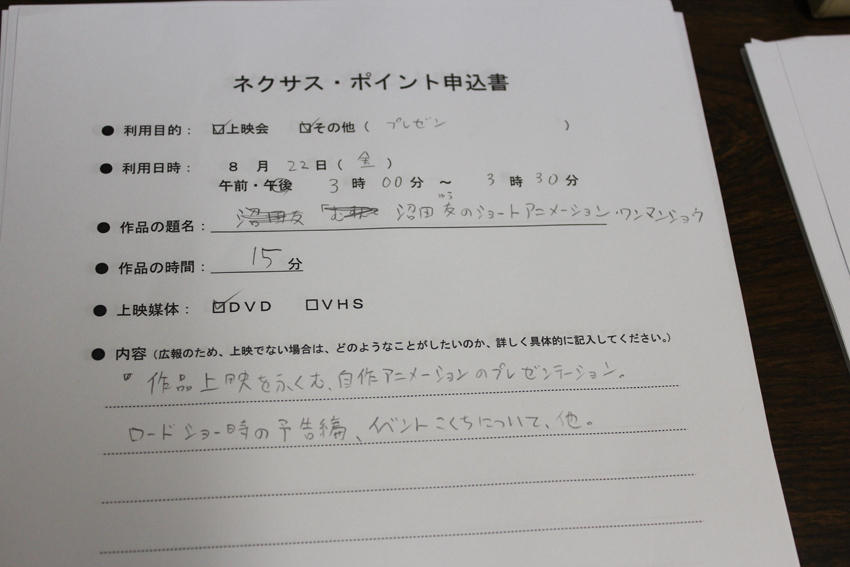 ネクサス・ポイント申込書
● 利用目的： ☑上映会 ☑その他（ プレゼン ）
● 利用日時： 8 月 22日（ 金 ）
午前・午後 3 時 00 分 ～ 3 時 30 分
ゆう
● 作品の題名： 沼田友のショートアニメーション・ワンマンショウ
● 作品の時間： 15 分
● 上映媒体： ☑DVD □VHS
● 内容（広報のため、上映でない場合は、どのようなことがしたいのか、詳しく具体的に記入してください。）
作品上映をふくむ、自作アニメーションのプレゼンテーション。
ロードショー時の予告編、イベントこくちについて、他。